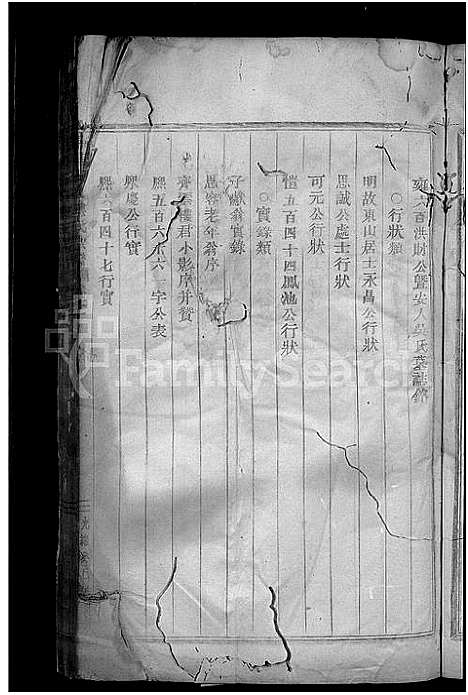 雍六百洪財公暨安人吳氏墓誌銘
○行狀類
明故東山居士禾昌公行狀
思誠公處士行狀
可元公行狀
愷五百四十四鳳池公行狀
○實錄類
子獻翁實錄
恩寧老年翁序
齊雲樓君小影序并贊
熙五百六十六一字公表
熙慶公行實
熙六百四十七行實
FamilySearch